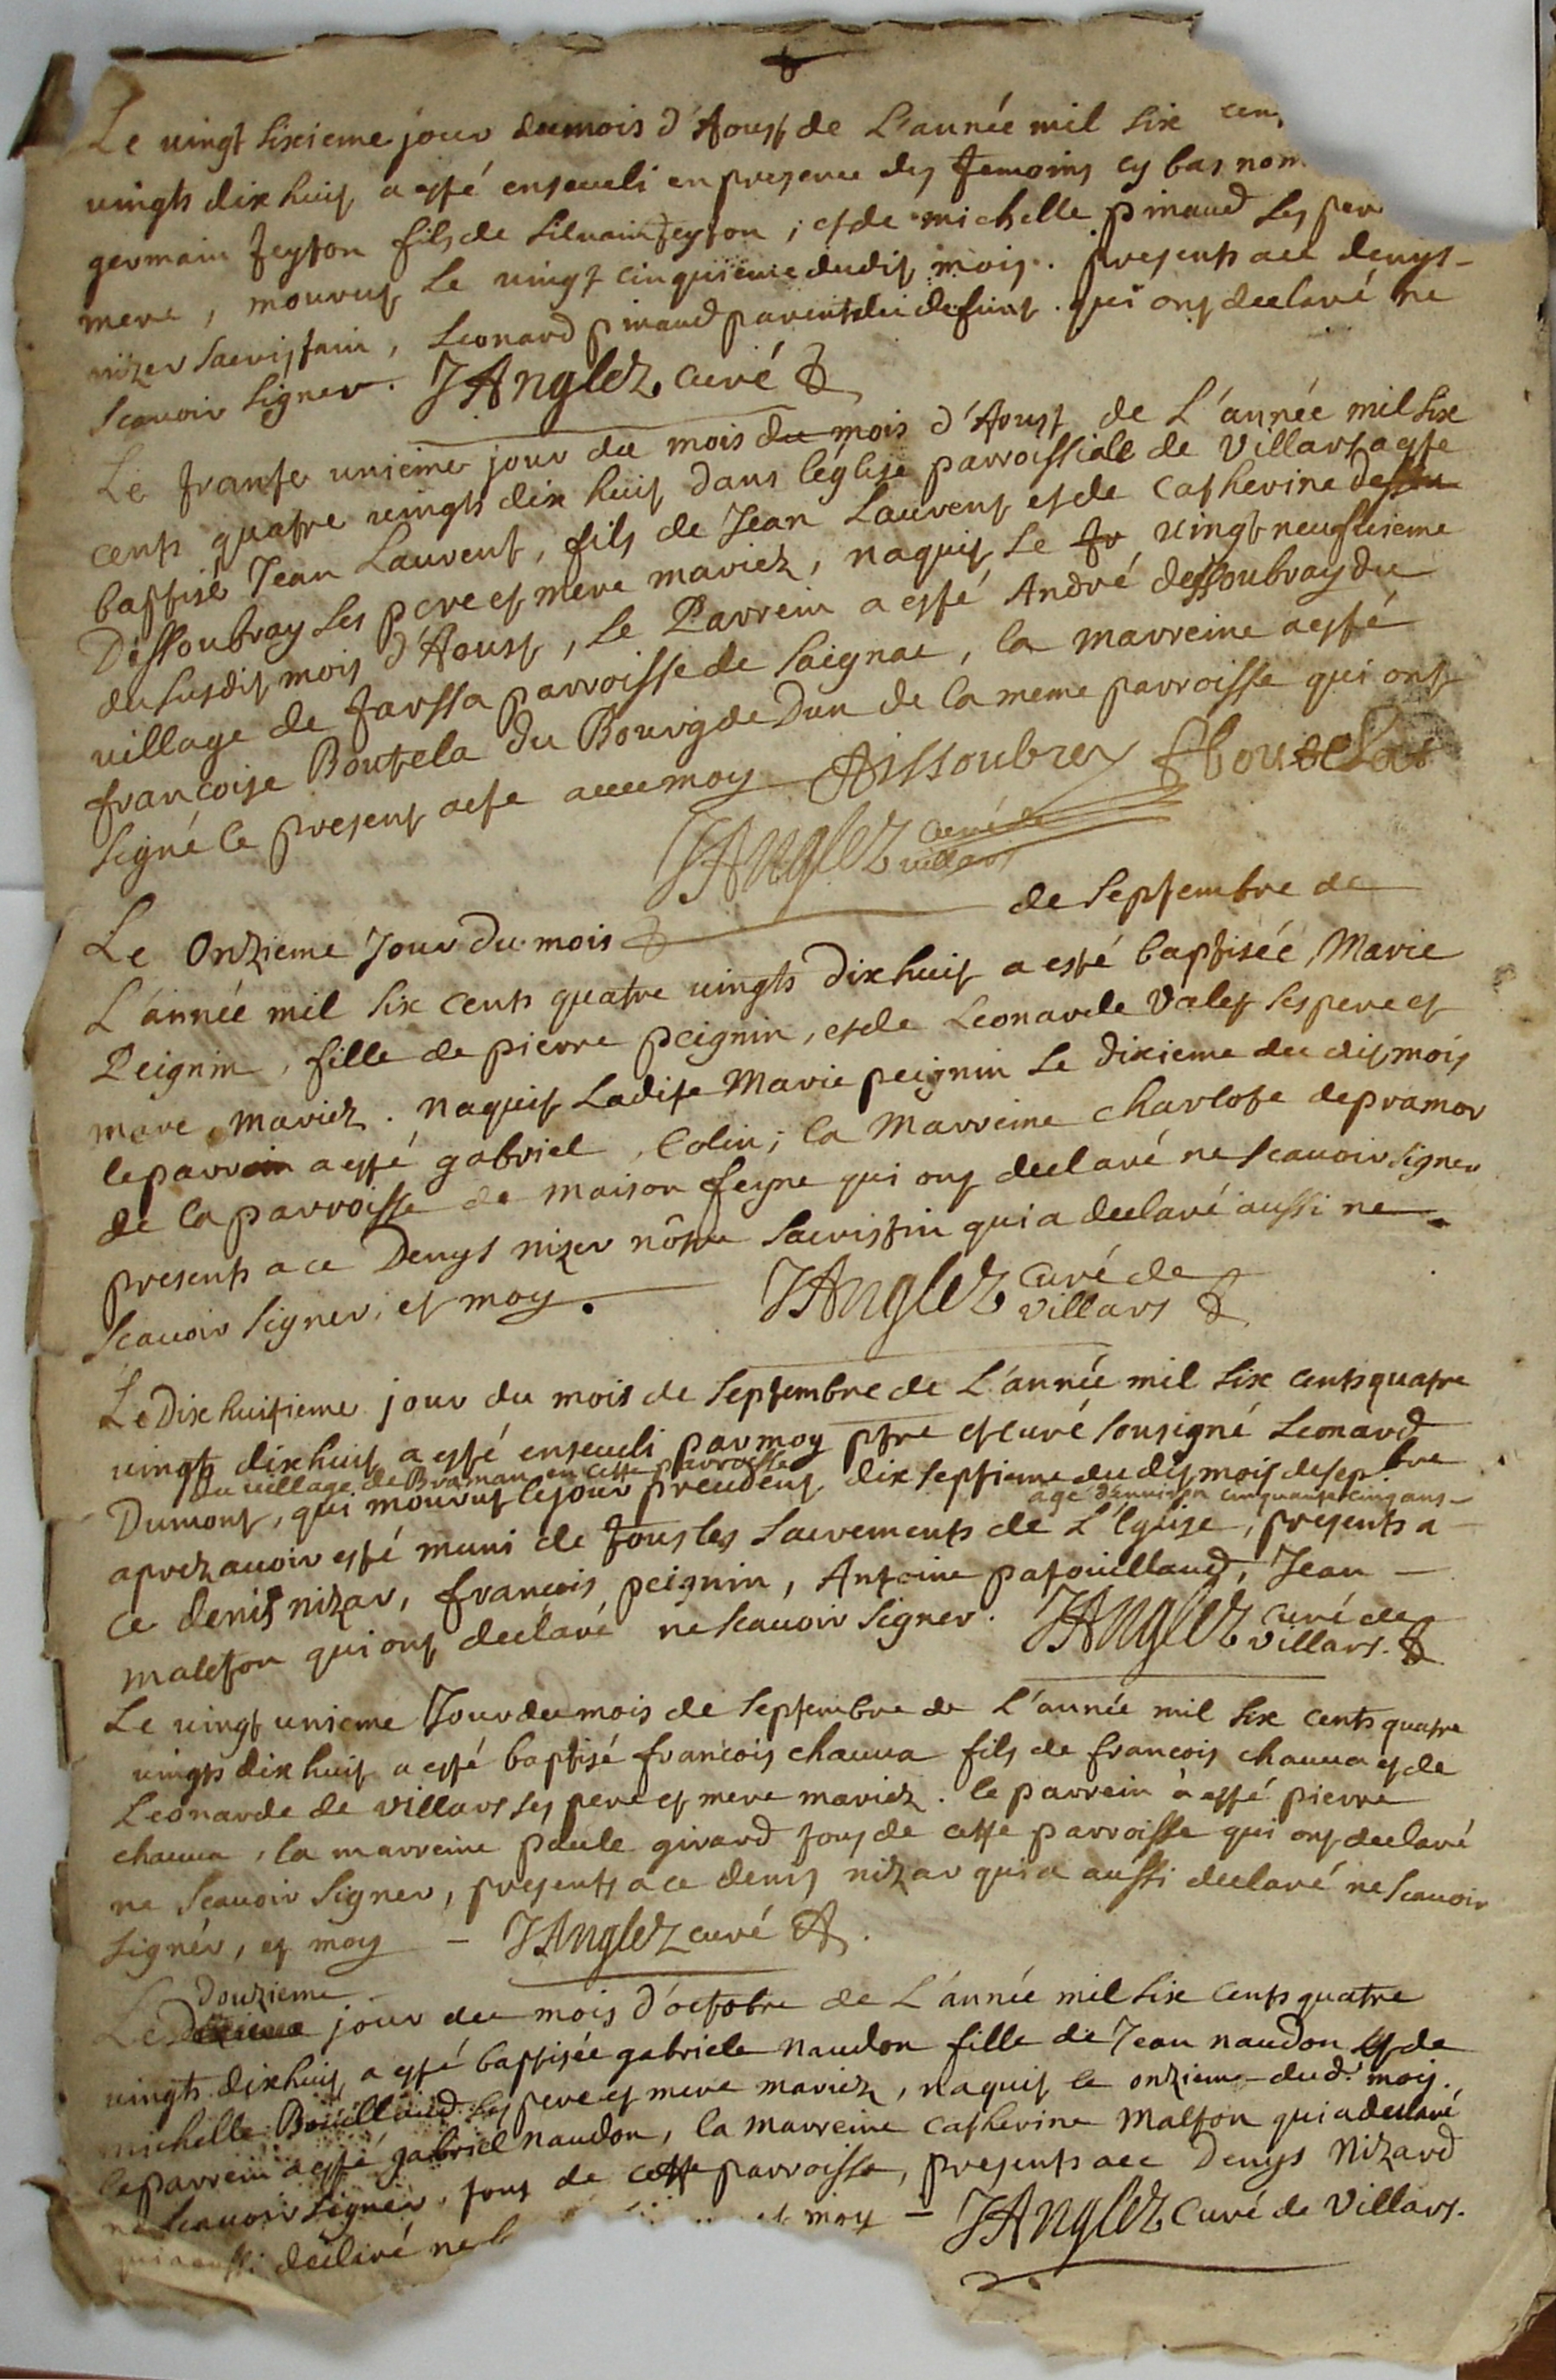 Le vingt sixieme jour du mois d'Aoust de L'année mil six cen
vingts dix huit a esté enseveli en presence des temoins cy bas nom
germain teyton fils de silvain teyton, et de michelle pinaud ses per
mere, mourut le vingt cinquieme dudit mois. presents a ce denys
nizer sacristain, Leonard pinaud parents du defunt. qui ont declaré ne
scavoir signer. JAnglez curé
Le trante unieme jour du mois du mois d'Aoust de L'année mil six
cents quatre vingts dix huit dans l'église parroissiale de Villars a este
baptisé Jean Laurent, fils de Jean Laurent et de Catherine dessou
Dissoubray ses pere et mere mariez, naquit le tr vingt neufvieme
du susdit mois d'Aoust, le Parrein a esté André dessoubray du
village de tarssa parroisse de saignac, la marreine a esté
francoise Boutela du Bourg de Dun de la meme parroisse qui ont
signé le present acte avec moy Aissoubrey fboutelas
JAnglez curé de
villars
Le Onzieme Jour du mois de septembre de
L'année mil six cents quatre vingts dix huit a esté baptisée Marie
Peignin, fille de pierre peignin, et de Leonarde Valet ses pere et
mere mariez. naquit Ladite Marie peignin le dixieme du dit mois
le parrein a esté gabriel Colin; la Marreine charlote depramor
de la parroisse de maison feyne qui ont declaré ne scavoir signer
presents a ce Denys nizer nôtre sacristin qui a declaré aussi ne
scavoir signer, et moy. JAnglez curé de
villars
Le Dix huitieme jour du mois de septembre de L'année mil six cents quatre
vingts dix huit a esté enseveli par moy ptre et curé sousigné Leonard
du village de Braman en cette parroisse
Dumont, qui mourut le jour precedent dix septieme du dit mois de sepbre
agé d'environ cinquante cinq ans
aprez avoir esté muni de tous les sacrements de L'Eglise, presents a
ce denis nizar, francois peignin, Antoine patouillaud, Jean
maleton qui ont declaré ne scavoir signer. JAnglez curé de
villars.
Le vingt unieme Jour du mois de septembre de L'année mil six cents quatre
vingts dix huit a esté baptisé francois chauva fils de francois chauva et de
Leonarde de villars ses pere et mere mariez. le parrein à esté pierre
chauva, la marreine paule girard tous de cette parroisse qui ont declaré
ne scavoir signer, presents a ce denis nizar qui a aussi declaré ne scavoir
signér, et moy – JAnglez curé
douzieme
Le jour du mois d'octobre de L'année mil six cents quatre
vingts dix huit a esté baptisée gabriele naudon fille de Jean naudon et de
michelle Bouillaud ses pere et mere mariez, naquit le onzieme dud. mois.
le parrein a esté gabriel naudon, la marreine catherine Malton qui a declaré
ne scavoir signer, tous de cette parroisse, presents a ce Denys Nizard
qui a aussi declaré ne s et moy – JAnglez Curé de Villars.